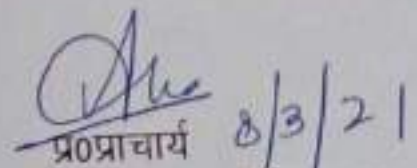 प्र०प्राचार्य 8/3/21